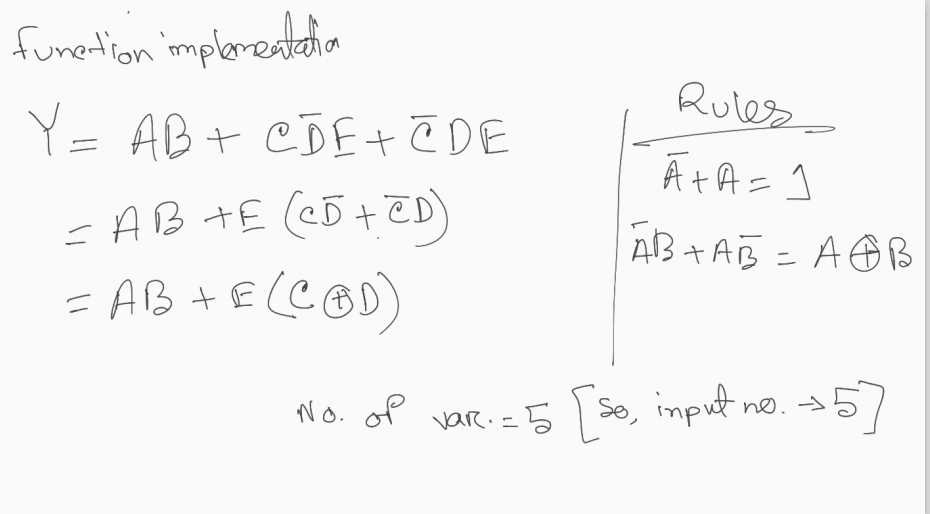 Function implementation
Y = AB + CD̅E + C̅DE
= AB + E (CD̅ + C̅D)
= AB + E (C ⊕ D)
Rules
A̅ + A = 1
A̅B + AB̅ = A ⊕ B
No. of var. = 5 [So, input no. → 5]